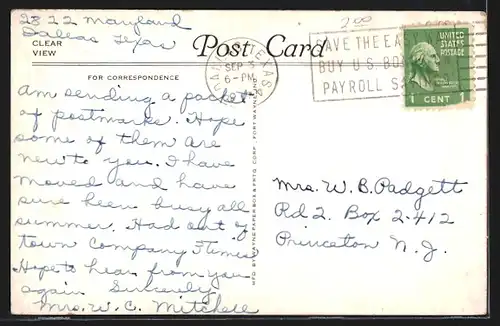 2822 Maryland
Dallas Texas
CLEAR
VIEW
Post Card
FOR CORRESPONDENCE
TEXAS
SEP
6-PM
SAVE THE EA
BUY U.S. BO
PAYROLL S
UNITED
STATES
POSTAGE
1 CENT
200
am sending a packet
of postmarks. Hope
some of them are
new to you. I have
moved and have
sure been busy all
summer. Had out of
town Company 7 times
Hope to hear from you
again Sincerely
Mrs. W. C. Mitchell
MFG. BY WAYNE PAPER BOX & PRTG. CORP. FORT WAYNE, IND.
Mrs. W. B. Padgett
Rd 2. Box 2412
Princeton N. J.